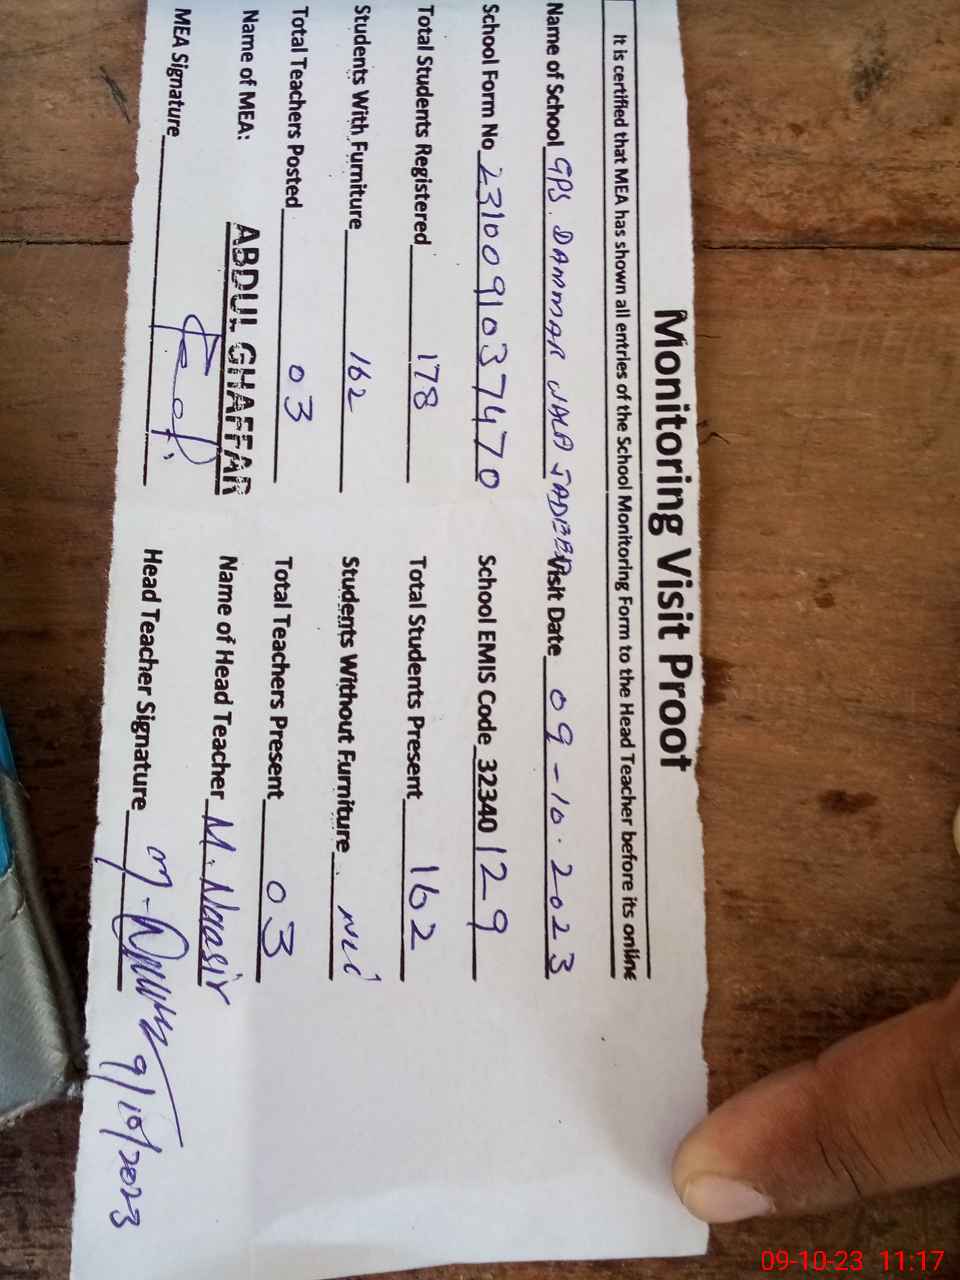 Monitoring Visit Proof
It is certified that MEA has shown all entries of the School Monitoring Form to the Head Teacher before its online
Name of School GPS. DAMMAR WALA JADEED Visit Date 09-10.2023
School Form No 2310091037470 School EMIS Code 32340129
Total Students Registered 178 Total Students Present 162
Students With Furniture 162 Students Without Furniture Nil
Total Teachers Posted 03 Total Teachers Present 03
Name of MEA: ABDUL GHAFFAR Name of Head Teacher M. Naasir
MEA Signature Head Teacher Signature
9/10/2023
09-10-23 11:17